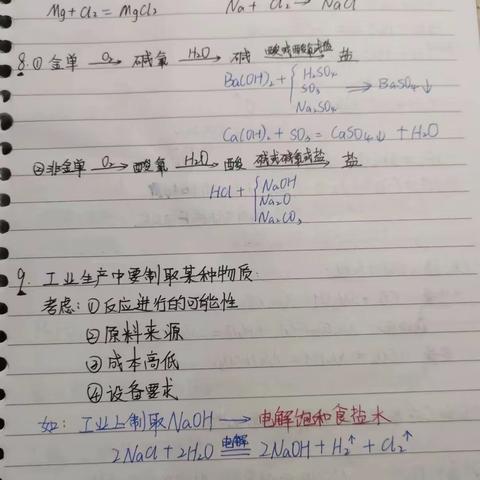 Mg + Cl₂ = MgCl₂ Na + Cl₂ → NaCl
8. ① 金单 —O₂→ 碱氧 —H₂O→ 碱 → 盐
Ba(OH)₂ + { H₂SO₄
SO₃ ⟹ BaSO₄↓
Na₂SO₄
Ca(OH)₂ + SO₃ = CaSO₄↓ + H₂O
②非金单 —O₂→ 酸氧 —H₂O→ 酸 碱或碱氧或盐→ 盐
HCl + { NaOH
Na₂O
Na₂CO₃
9. 工业生产中要制取某种物质:
考虑:①反应进行的可能性
②原料来源
③成本高低
④设备要求
如: 工业上制取NaOH → 电解饱和食盐水
2NaCl + 2H₂O 电解 2NaOH + H₂↑ + Cl₂↑